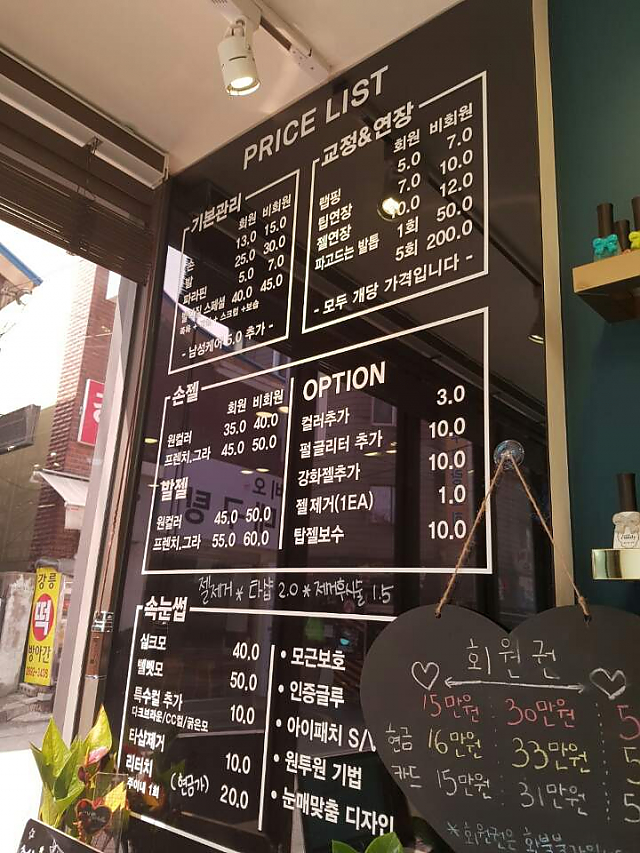 PRICE LIST
기본관리
회원 비회원
손 13.0 15.0
발 25.0 30.0
파라핀 5.0 7.0
스페셜 40.0 45.0
스크럽+보습
- 남성케어 5.0 추가 -
교정&연장
회원 비회원
랩핑 5.0 7.0
팁연장 7.0 10.0
젤연장 10.0 12.0
파고드는 발톱 1회 50.0
5회 200.0
- 모두 개당 가격입니다 -
손젤
회원 비회원
원컬러 35.0 40.0
프렌치,그라 45.0 50.0
발젤
원컬러 45.0 50.0
프렌치,그라 55.0 60.0
OPTION
컬러추가 3.0
펄글리터 추가 10.0
강화젤추가 10.0
젤제거(1EA) 1.0
탑젤보수 10.0
젤제거 * 타샵 2.0 * 제거후시술 1.5
속눈썹
실크모 40.0
벨벳모 50.0
특수컬 추가 10.0
다크브라운/CC컬/굵은모
타샵제거 10.0
리터치 (현금가) 20.0
주이내 1회
• 모근보호
• 인증글루
• 아이패치 S/
• 원투원 기법
• 눈매맞춤 디자인
회원권
15만원 30만원 5
현금 16만원 33만원 5
카드 15만원 31만원 5
*회원권은
강릉
떡
방아간